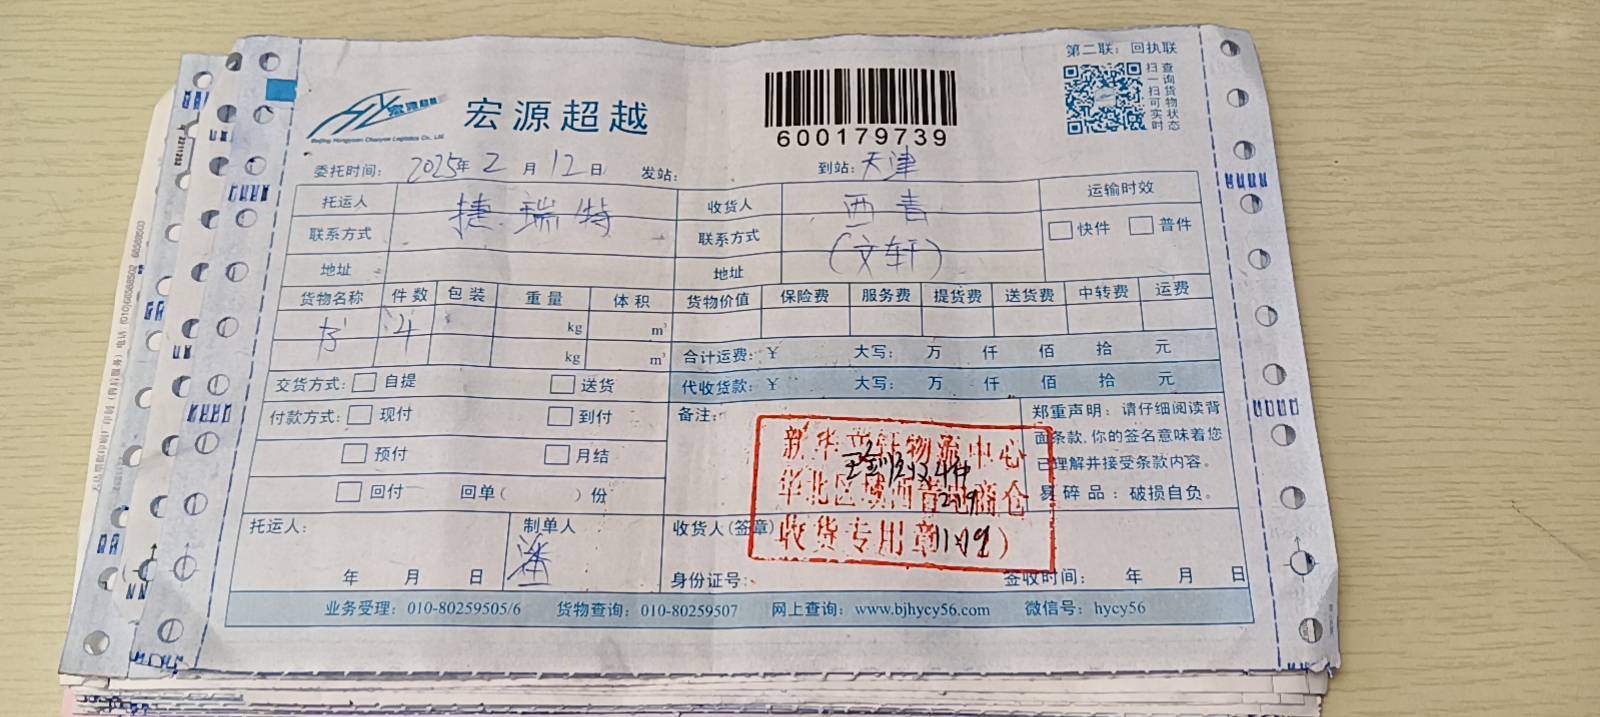 第二联：回执联
宏源超越
Beijing Hongyuan Chaoyue Logistics Co., Ltd.
600179739
扫一扫可实时
查询货物状态
委托时间：2025年2月12日 发站： 到站：天津
托运人 捷瑞特 收货人 西青 运输时效
联系方式 联系方式 (文轩) 快件 普件
地址 地址
货物名称 件数 包装 重量 体积 货物价值 保险费 服务费 提货费 送货费 中转费 运费
书 4 kg m³
kg m³ 合计运费：￥ 大写： 万 仟 佰 拾 元
交货方式： 自提 送货 代收货款：￥ 大写： 万 仟 佰 拾 元
付款方式： 现付 到付 备注：
预付 月结
回付 回单（ ）份
郑重声明：请仔细阅读背
面条款,你的签名意味着您
已理解并接受条款内容。
易碎品：破损自负。
新华文轩物流中心
华北区域西青电商仓
收货专用章
托运人： 制单人 潘 收货人(签章)
年 月 日 身份证号： 签收时间： 年 月 日
业务受理：010-80259505/6 货物查询：010-80259507 网上查询：www.bjhycy56.com 微信号：hycy56